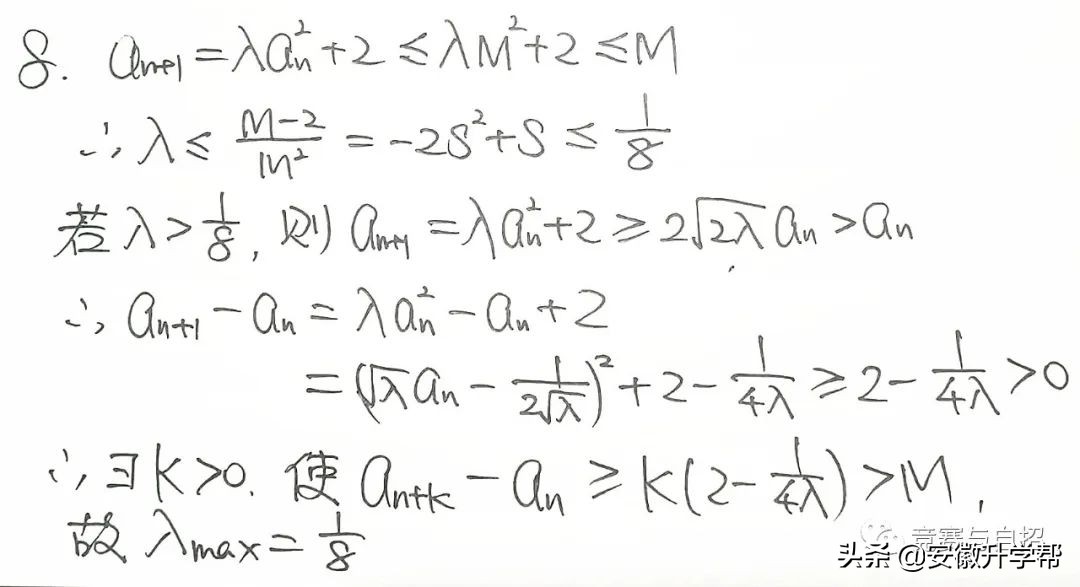 8. aₙ₊₁ = λaₙ² + 2 ≤ λM² + 2 ≤ M
∴ λ ≤ (M-2)/M² = -2S² + S ≤ 1/8
若 λ > 1/8, 则 aₙ₊₁ = λaₙ² + 2 ≥ 2√(2λ) aₙ > aₙ
∴ aₙ₊₁ - aₙ = λaₙ² - aₙ + 2
= (√λ aₙ - 1/(2√λ))² + 2 - 1/(4λ) ≥ 2 - 1/(4λ) > 0
∴ ∃ k > 0. 使 aₙ₊ₖ - aₙ ≥ k(2 - 1/(4λ)) > M,
故 λmax = 1/8
竞赛与自招
头条 @安徽升学帮